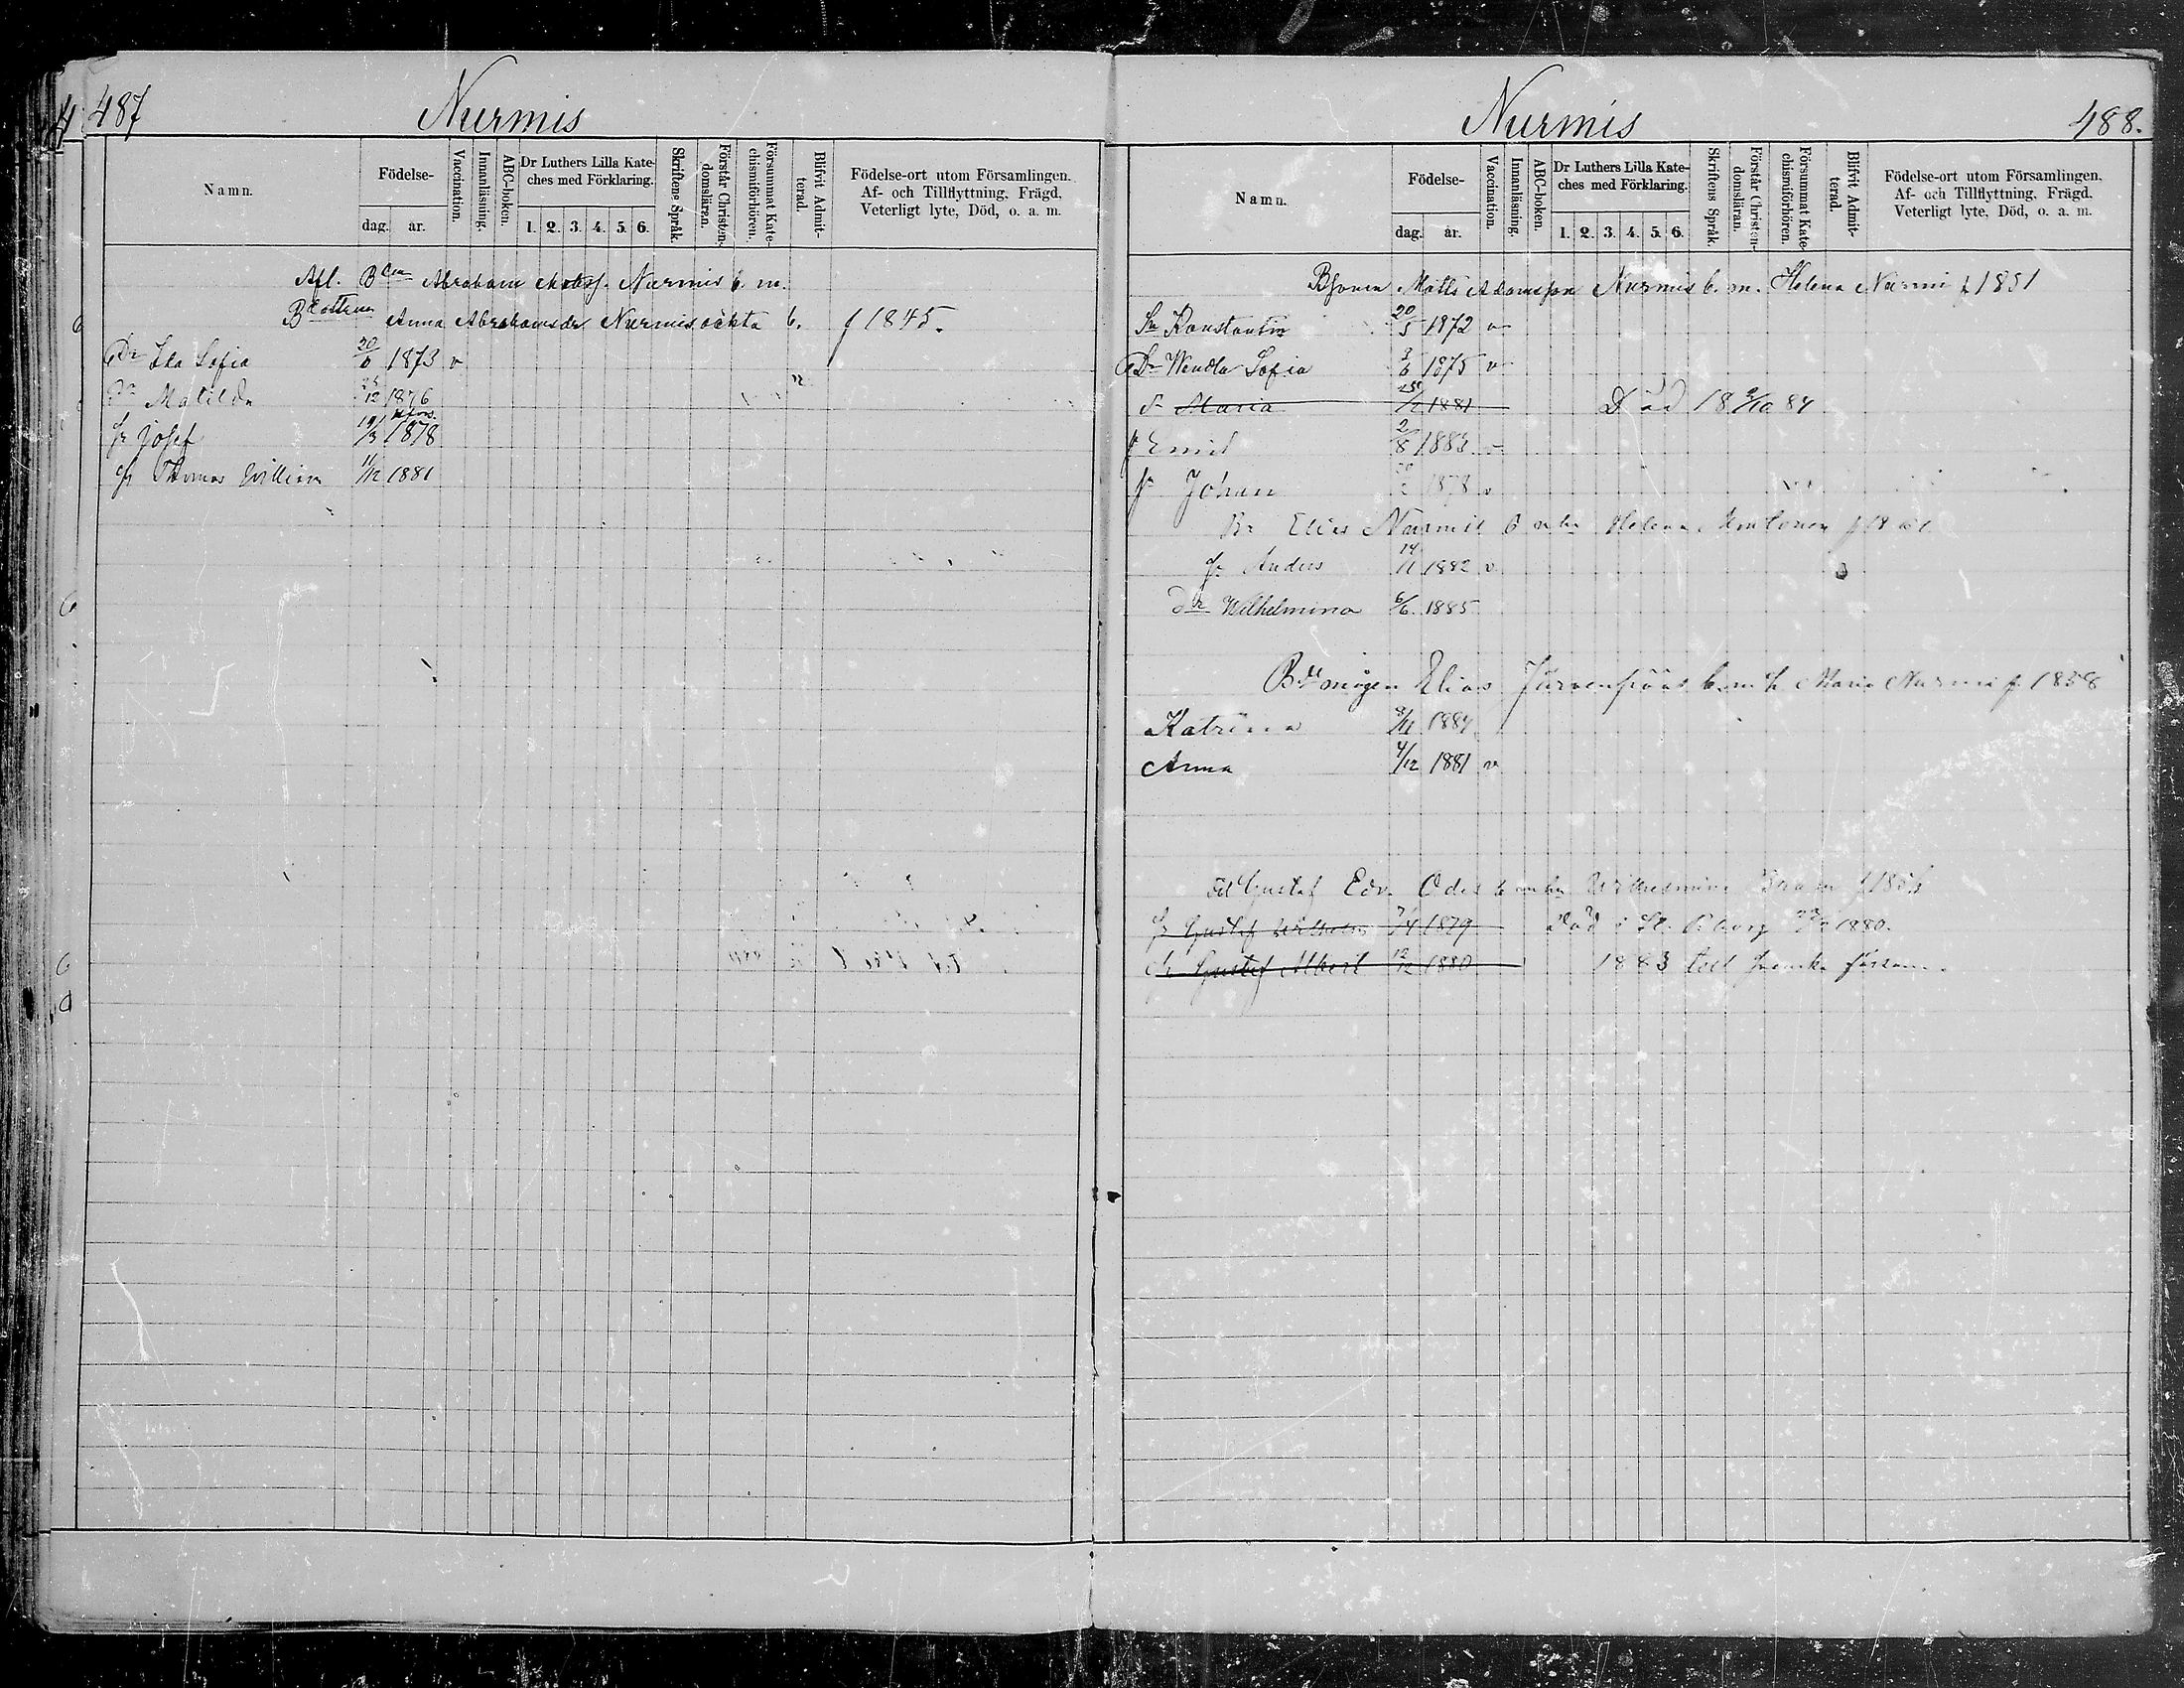 487
Nurmis
Namn.
Födelse-
dag. år.
Vaccination.
Innanläsning.
ABC-boken.
Dr Luthers Lilla Kate-
ches med Förklaring.
1. 2. 3. 4. 5. 6.
Skriftens Språk.
Förstår Christen-
domsläran.
Försummat Kate-
chismiförhören.
Blifvit Admit-
terad.
Födelse-ort utom Församlingen.
Af- och Tillflyttning, Frägd,
Veterligt lyte, Död, o. a. m.
Afl. Abraham Nurmis b. m.
Anna Abrahamsdr Nurmis oäkta b. f 1845.
Dr Ida Sofia 1873 v
Dr Matilda 1876
Sr Josef 19/3 1878
Sr Thomas William 11/12 1881
Nurmis
488.
Namn.
Födelse-
dag. år.
Vaccination.
Innanläsning.
ABC-boken.
Dr Luthers Lilla Kate-
ches med Förklaring.
1. 2. 3. 4. 5. 6.
Skriftens Språk.
Förstår Christen-
domsläran.
Försummat Kate-
chismiförhören.
Blifvit Admit-
terad.
Födelse-ort utom Församlingen.
Af- och Tillflyttning, Frägd.
Veterligt lyte, Död, o. a. m.
Bsonen Matts Adamsson Nurmis b. m. Helena Nurmi f 1851
Sn Konstantin 20/5 1872 v
Dr Wendla Sofia 3/6 1875 v
Dr Maria 1881 Död 18 9/10 84
Sr Emil 2/8 1883 v
Sr Johan 1878 v
Br Elias Nurmis b m hu Helena
Sr Anders 14/11 1882 v
Dr Wilhelmina 6/6 1885
Bdrmågen Elias Järvenpää b m h Maria Nurmi f 1858
Katrina 8/11 1884
Anna 4/12 1881 v
Gustaf Edv. b m hu Wilhelmina
Sr Gustaf Wilhelm 1879 Död i St. P.burg 1880.
Sr Gustaf Albert 12/12 1880 1883 till Svenska försam.